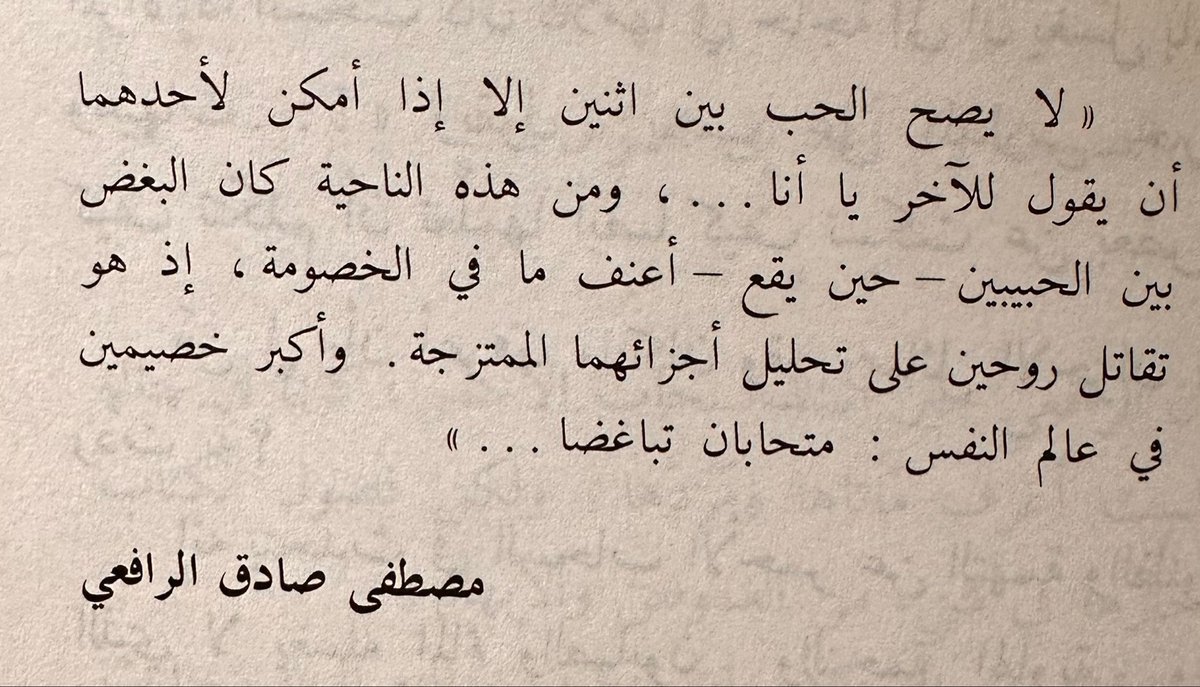 « لا يصح الحب بين اثنين إلا إذا أمكن لأحدهما
أن يقول للآخر يا أنا . . . ، ومن هذه الناحية كان البغض
بين الحبيبين – حين يقع – أعنف ما في الخصومة ، إذ هو
تقاتل روحين على تحليل أجزائهما الممتزجة . وأكبر خصيمين
في عالم النفس : متحابان تباغضا . . . »
مصطفى صادق الرافعي